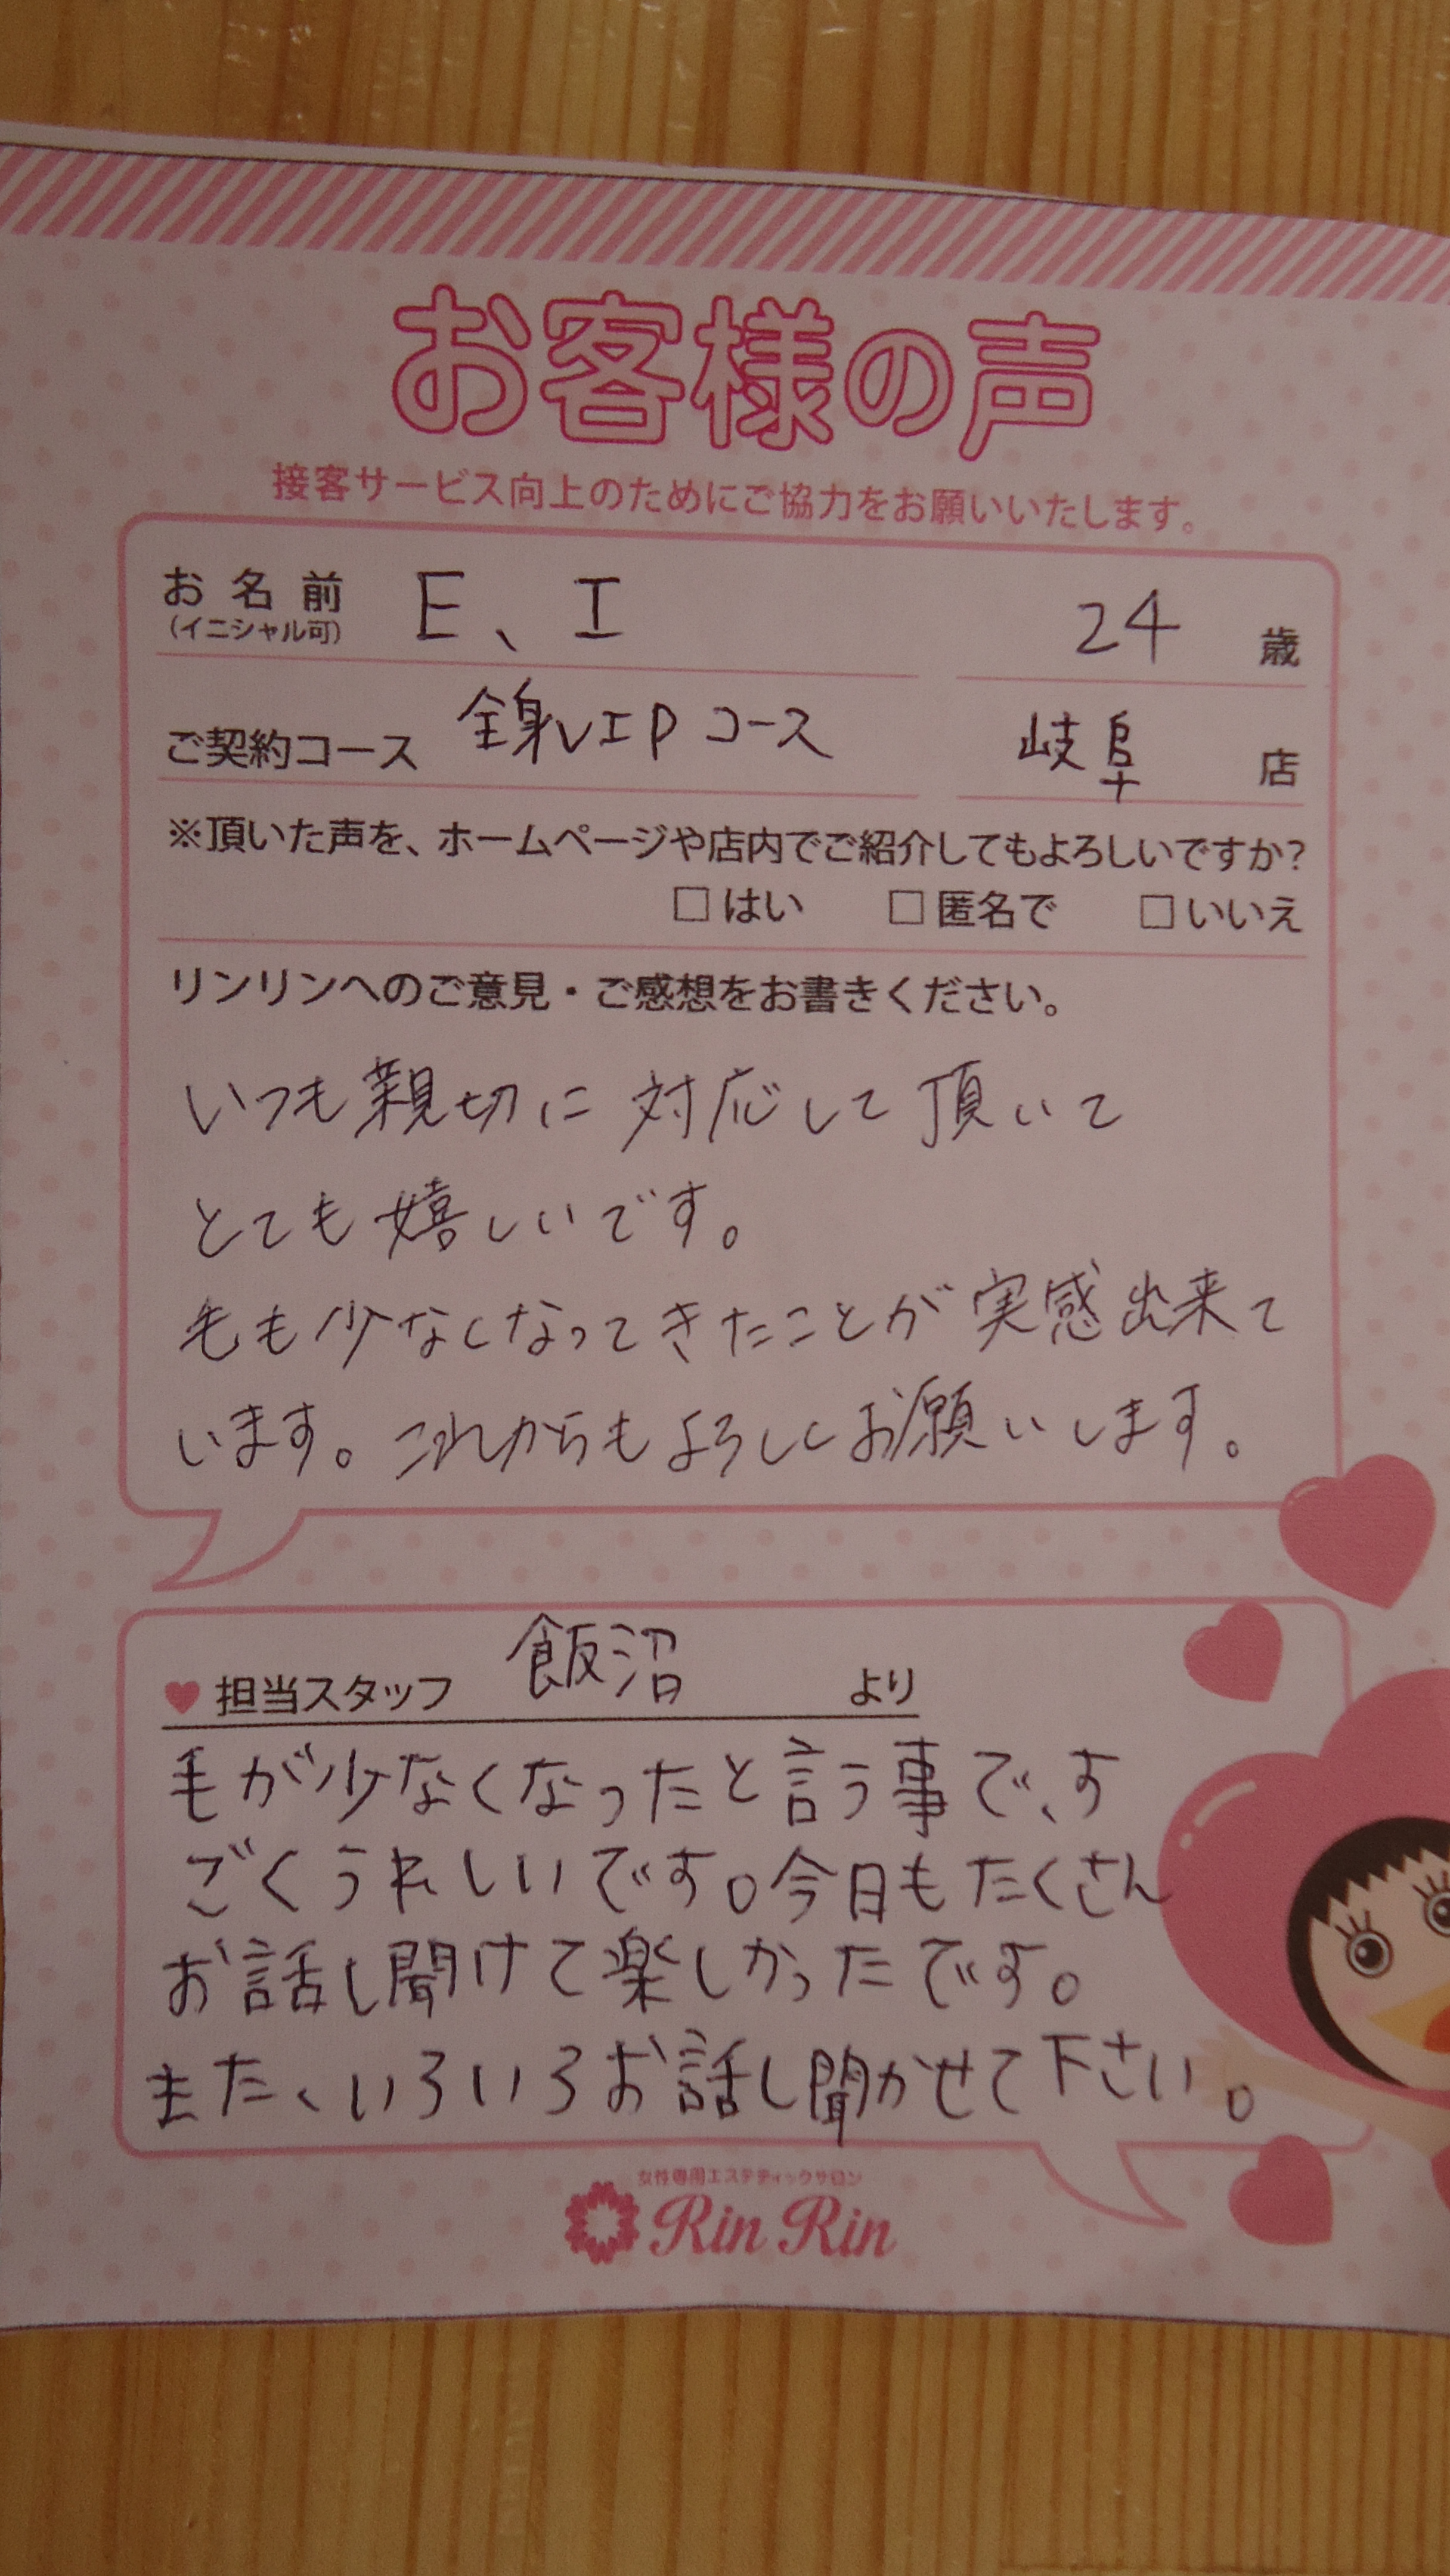 お客様の声
接客サービス向上のためにご協力をお願いいたします。
お名前 E、I 24 歳
(イニシャル可)
ご契約コース 全身VIPコース 岐阜 店
※頂いた声を、ホームページや店内でご紹介してもよろしいですか?
□はい □匿名で □いいえ
リンリンへのご意見・ご感想をお書きください。
いつも親切に対応して頂いて
とても嬉しいです。
毛も少なくなってきたことが実感出来て
います。これからもよろしくお願いします。
♥担当スタッフ 飯沼 より
毛が少なくなったと言う事で、す
ごくうれしいです。今日もたくさん
お話し聞けて楽しかったです。
また、いろいろお話し聞かせて下さい。
女性専用エステティックサロン
Rin Rin